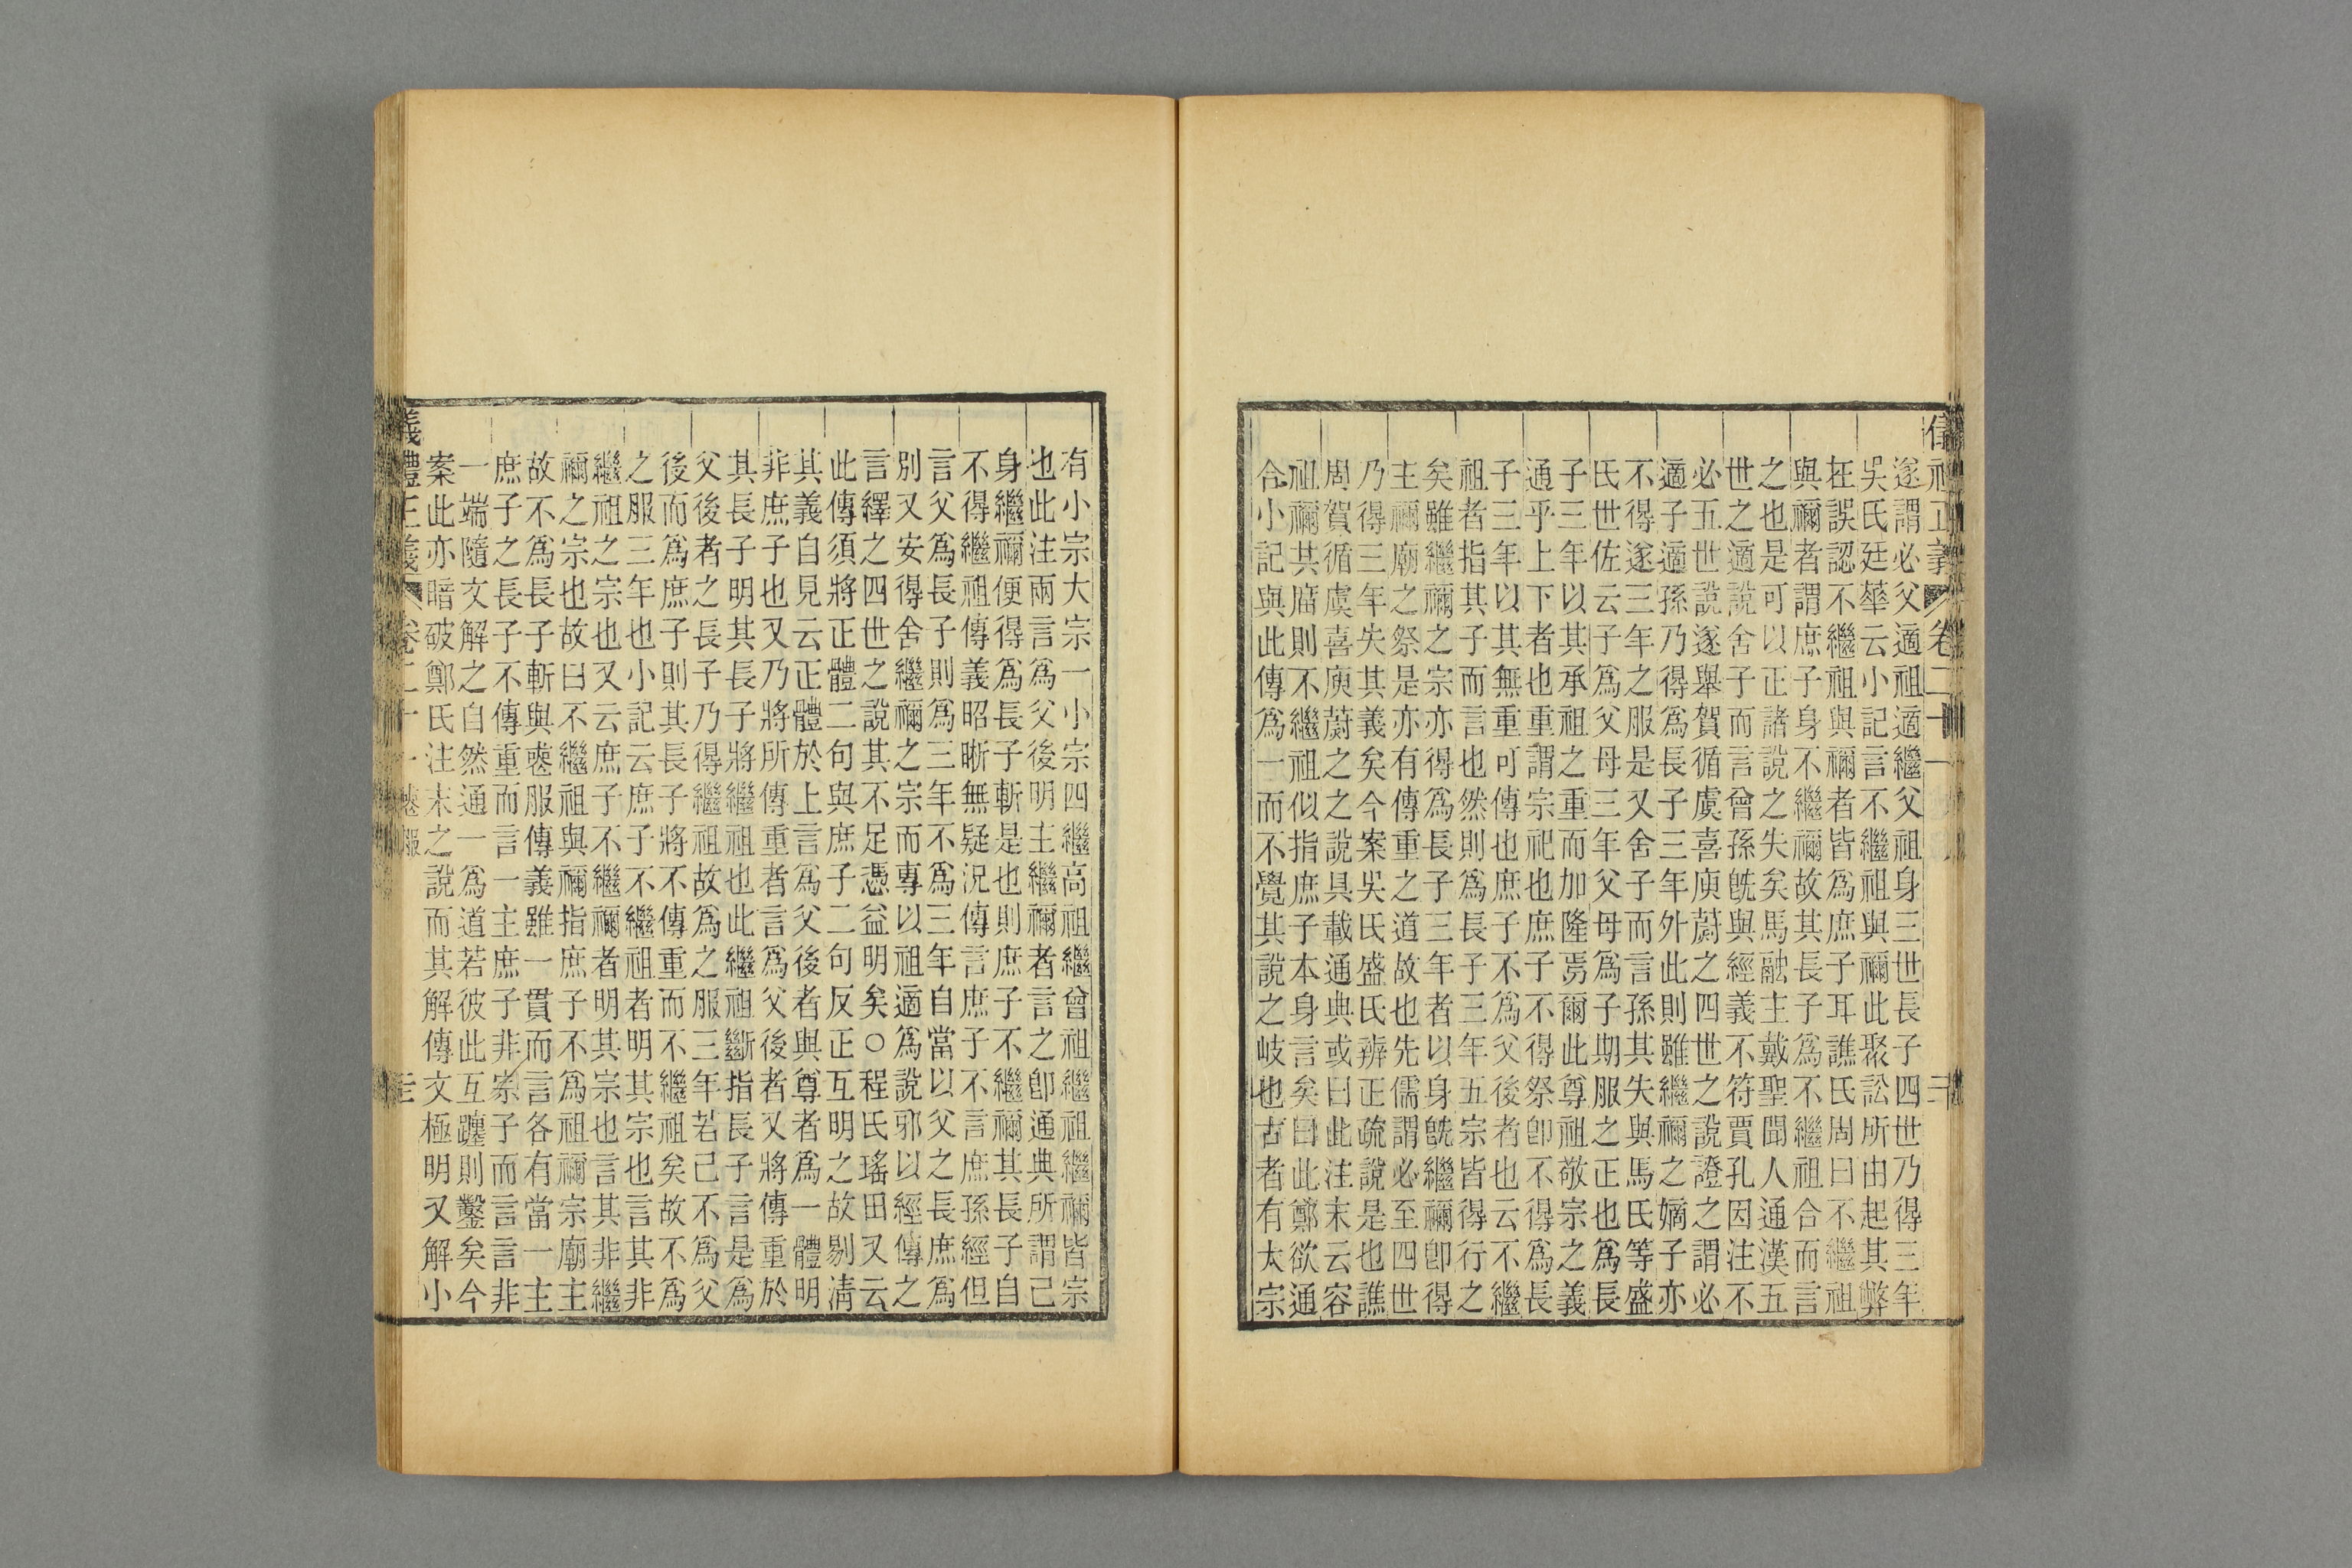 儀禮正義 卷二十一
遂謂必父適祖適繼父祖身三世長子四世乃得三年
吳氏廷華云小記言不繼祖與禰此聚訟所由起其弊
在誤認不繼祖與禰者皆爲庶子耳譙氏周曰不繼祖
與禰者謂庶子身不繼禰故其長子爲不繼祖合而言
之也是可以正諸說之失矣馬融主戴聖聞人通漢五
世之適說舍子而言曾孫旣與經義不符賈孔因注不
必五世說遂舉賀循虞喜庾蔚之四世之說證之謂必
適子適孫乃得爲長子三年外此則雖繼禰之嫡子亦
不得遂三年之服是又舍子而言孫其失與馬氏等盛
氏世佐云子爲父母三年父母爲子期服之正也爲長
子三年以其承祖之重而加隆焉爾此尊祖敬宗之義
通乎上下者也重謂宗祀也庶子不得祭卽不得爲長
子三年以其無重可傳也庶子不爲父後者也云不繼
祖者指其子而言也然則爲長子三年五宗皆得行之
矣雖繼禰之宗亦得爲長子三年者以身旣繼禰卽得
主禰廟之祭是亦有傳重之道故也先儒謂必至四世
乃得三年失其義矣今案吳氏盛氏辨正疏說是也譙
周賀循虞喜庾蔚之之說具載通典或曰此注末云容
祖禰其廟則不繼祖似指庶子本身言矣曰此鄭欲通
合小記與此傳爲一而不覺其說之岐也古者有太宗
有小宗大宗一小宗四繼高祖繼曾祖繼祖繼禰皆宗
也此注兩言爲父後明主繼禰者言之卽通典所謂己
身繼禰便得爲長子斬是也則庶子不繼禰其長子自
不得繼祖傳義昭晰無疑況傳言庶子不言庶孫經但
言父爲長子則爲三年不爲三年自當以父之長庶爲
別又安得舍繼禰之宗而專以祖適爲說邪以經傳之
言繹之四世之說其不足憑益明矣○程氏瑤田又云
此傳須將正體二句與庶子二句反正互明之故剔淸
其義自見云正體於上言爲父後者與尊者爲一體明
非庶子也又乃將所傳重者言爲父後者又將傳重於
其長子明其長子將繼祖也此繼祖斷指長子言是爲
父後者之長子乃得繼祖故爲之服三年若己不爲父
後而爲庶子則其長子將不傳重而不繼祖矣故不爲
之服三年也小記云庶子不繼祖者明其宗也言其非
繼祖之宗也又云庶子不繼禰者明其宗也言其非繼
禰之宗也故曰不繼祖與禰指庶子不爲祖禰宗廟主
故不爲長子斬與喪服傳義雖一貫而言各有當一主
庶子之長子不傳重而言一主庶子非宗子而言言非
一端隨文解之自然通一爲道若彼此互躔則鑿矣今
案此亦暗破鄭氏注末之說而其解傳文極明又解小